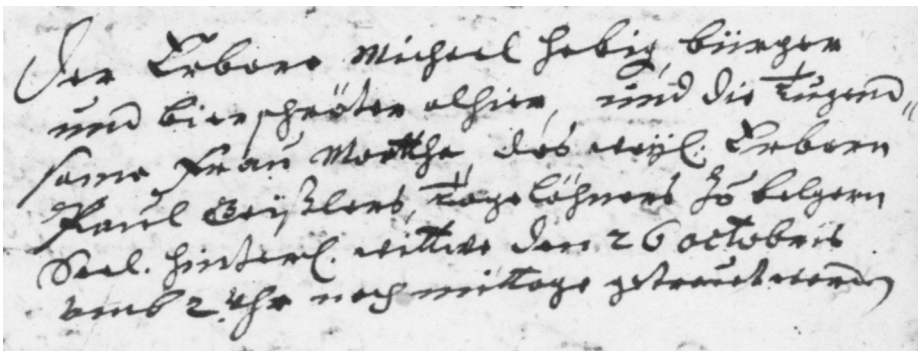 Der Erbare Michael Habig, bürger
und bierschröter alhier, und die Tugend„
same Frau Martha, des weyl. Erbarn
Paul Geißlers, Tagelöhners zu belgern
Seel. hinterl. wittwe den 26 octobris
umb 2 Uhr nach mittage getrauet worden